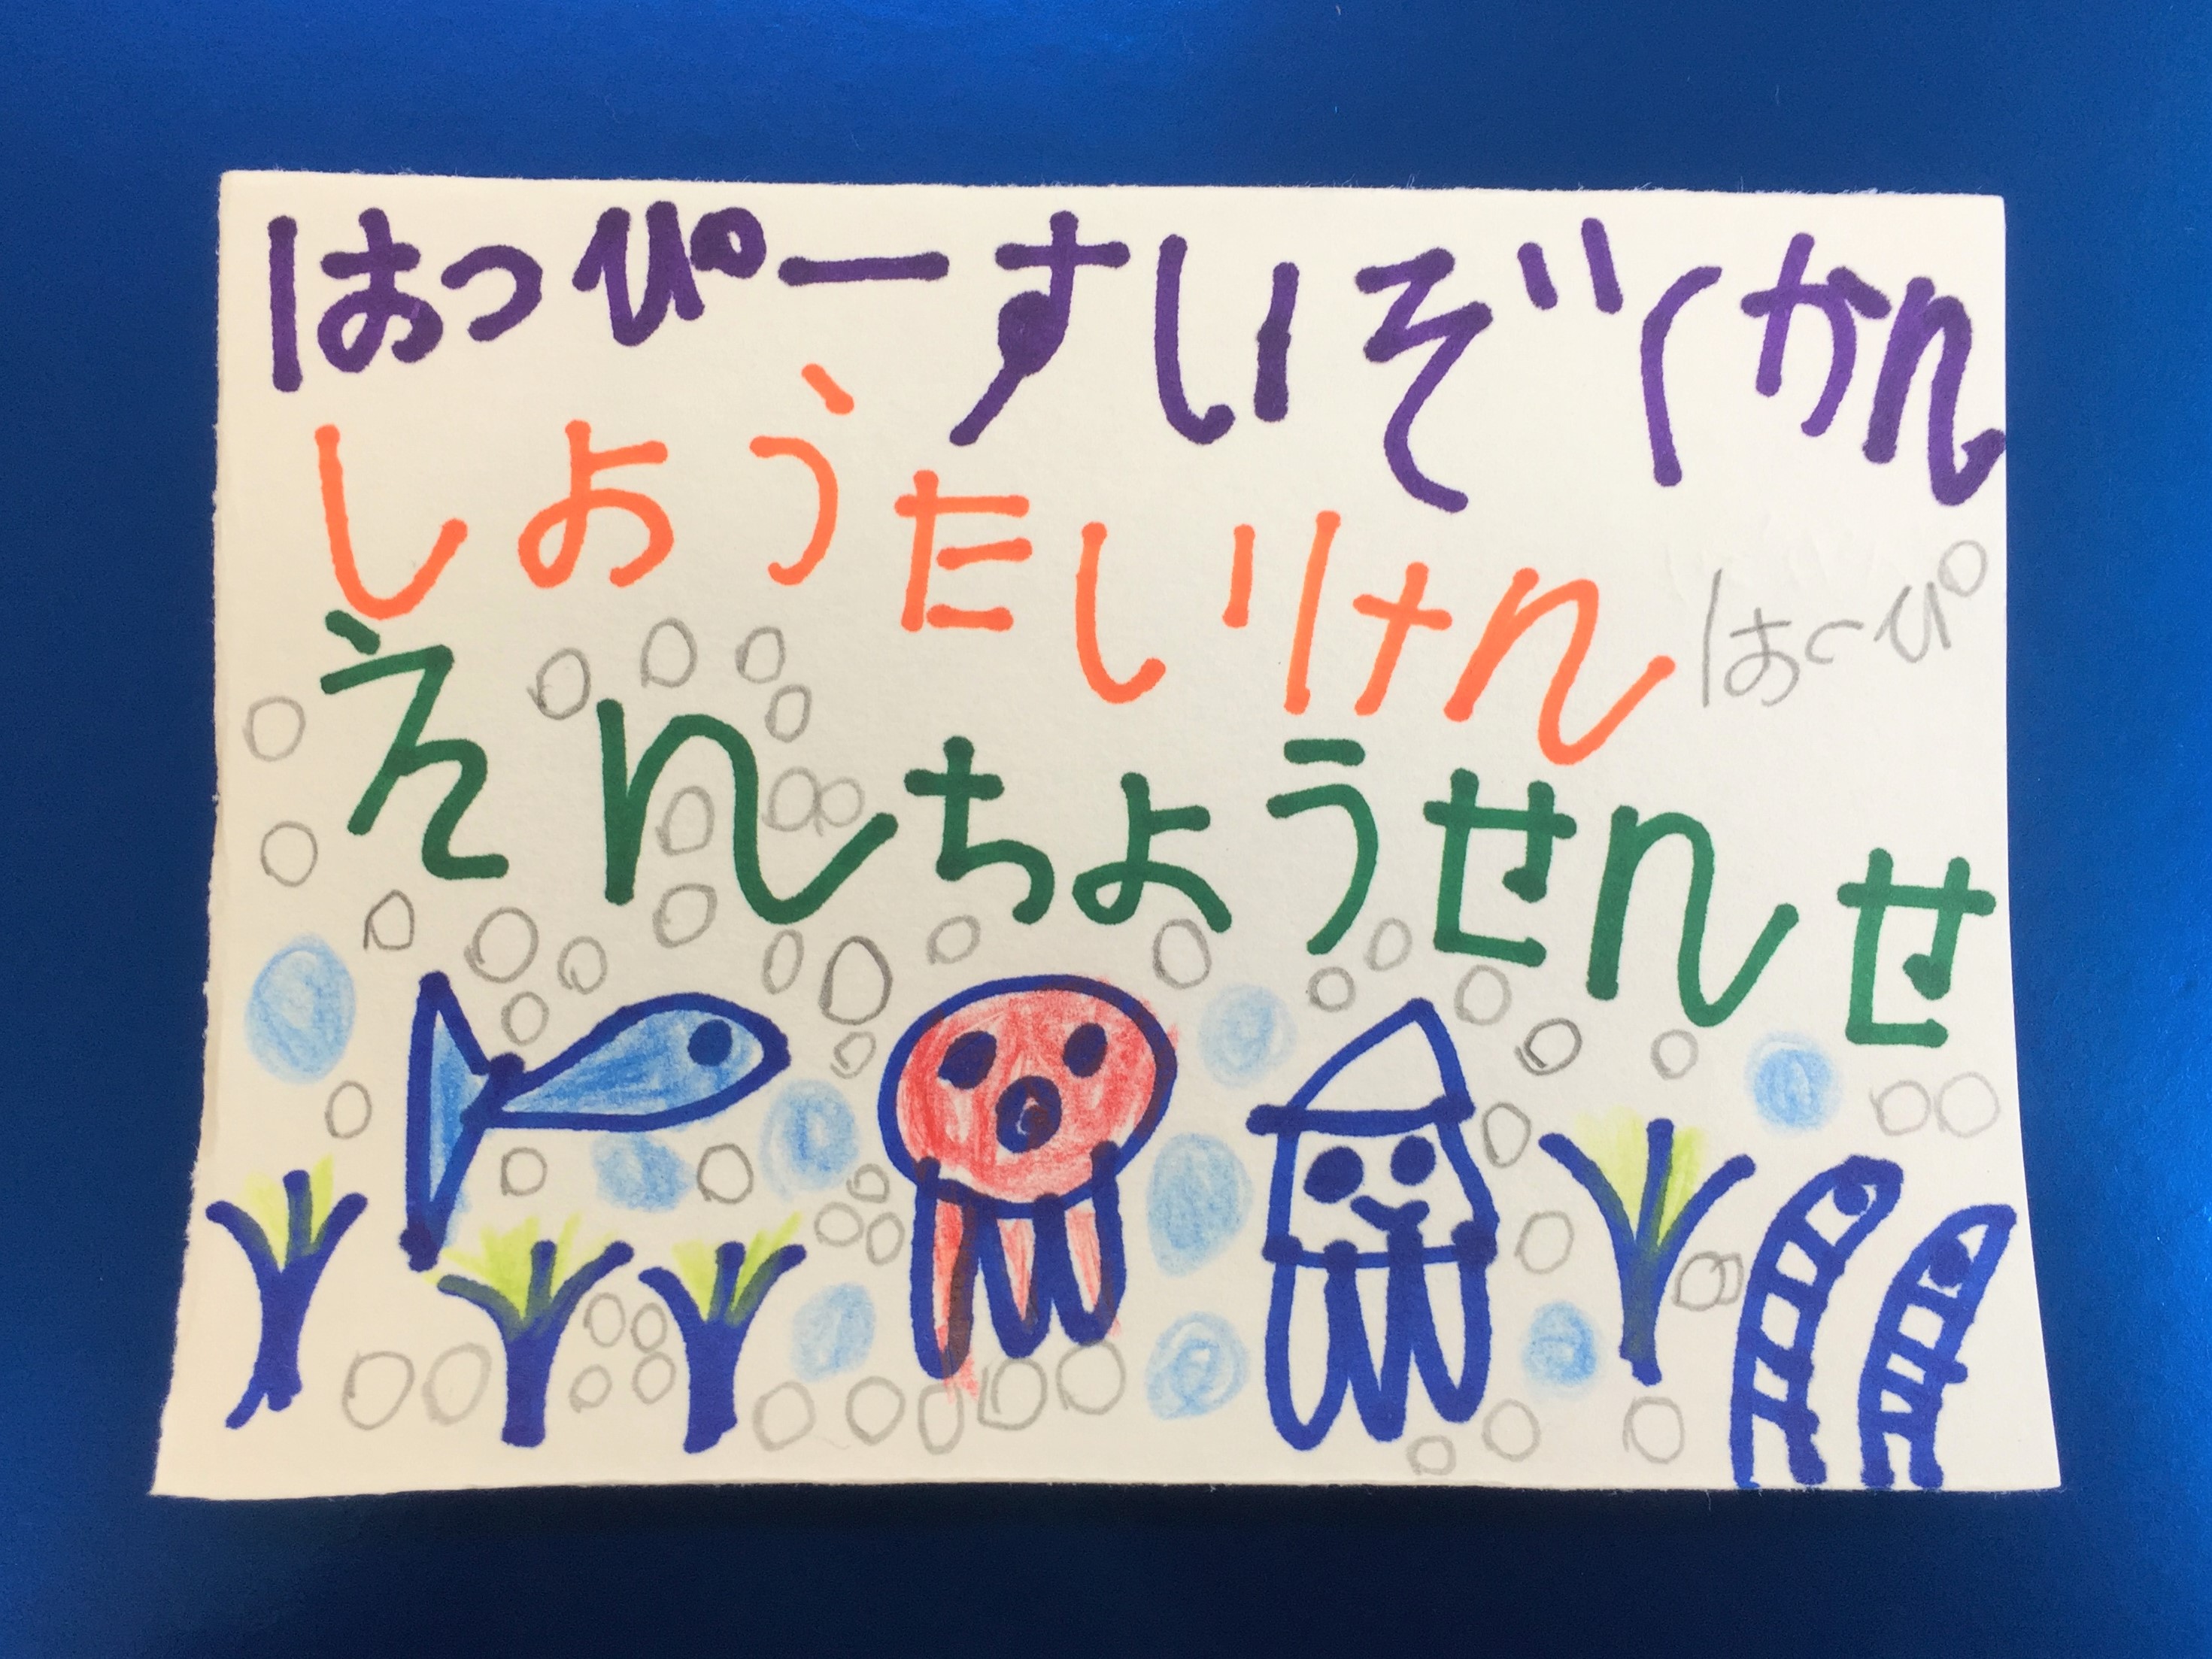 はっぴーすいぞくかん
しようたいけん
はっぴ
えんちょうせんせ